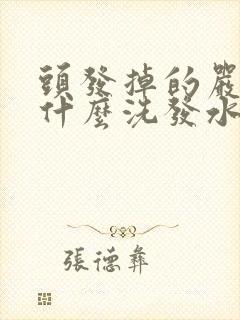 頭發掉的嚴
什麼洗發水
張德彝